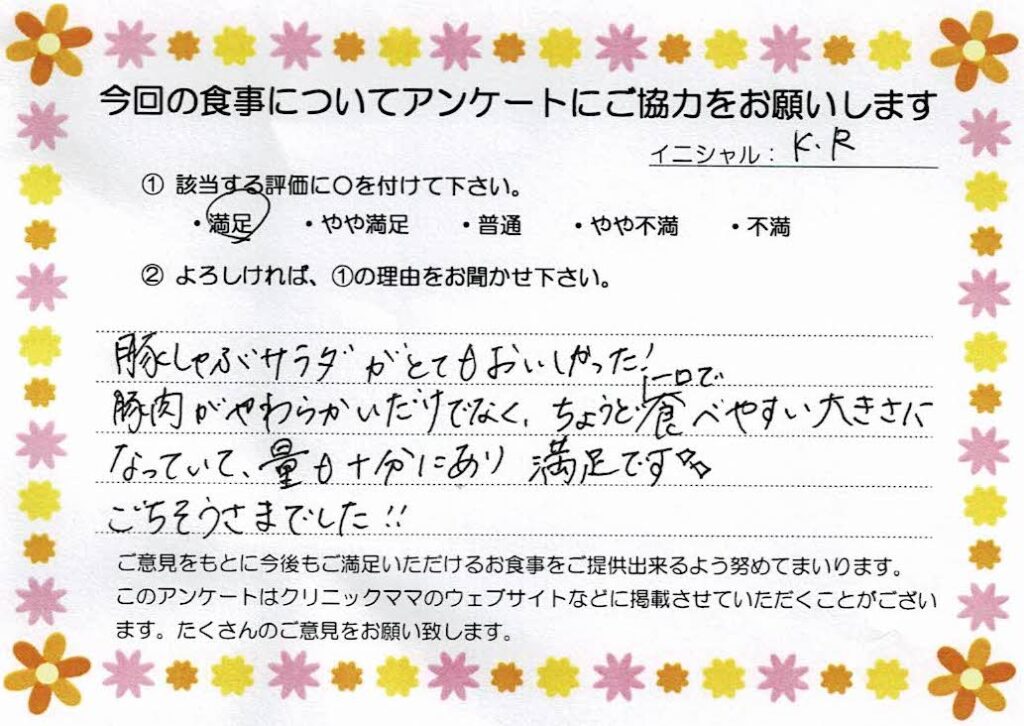 今回の食事についてアンケートにご協力をお願いします
イニシャル： K.R
① 該当する評価に〇を付けて下さい。
・満足 ・やや満足 ・普通 ・やや不満 ・不満
② よろしければ、①の理由をお聞かせ下さい。
豚しゃぶサラダがとてもおいしかった！
豚肉がやわらかいだけでなく、ちょうど一口で食べやすい大きさに
なっていて、量も十分にあり 満足です
ごちそうさまでした!!
ご意見をもとに今後もご満足いただけるお食事をご提供出来るよう努めてまいります。
このアンケートはクリニックママのウェブサイトなどに掲載させていただくことがござい
ます。たくさんのご意見をお願い致します。